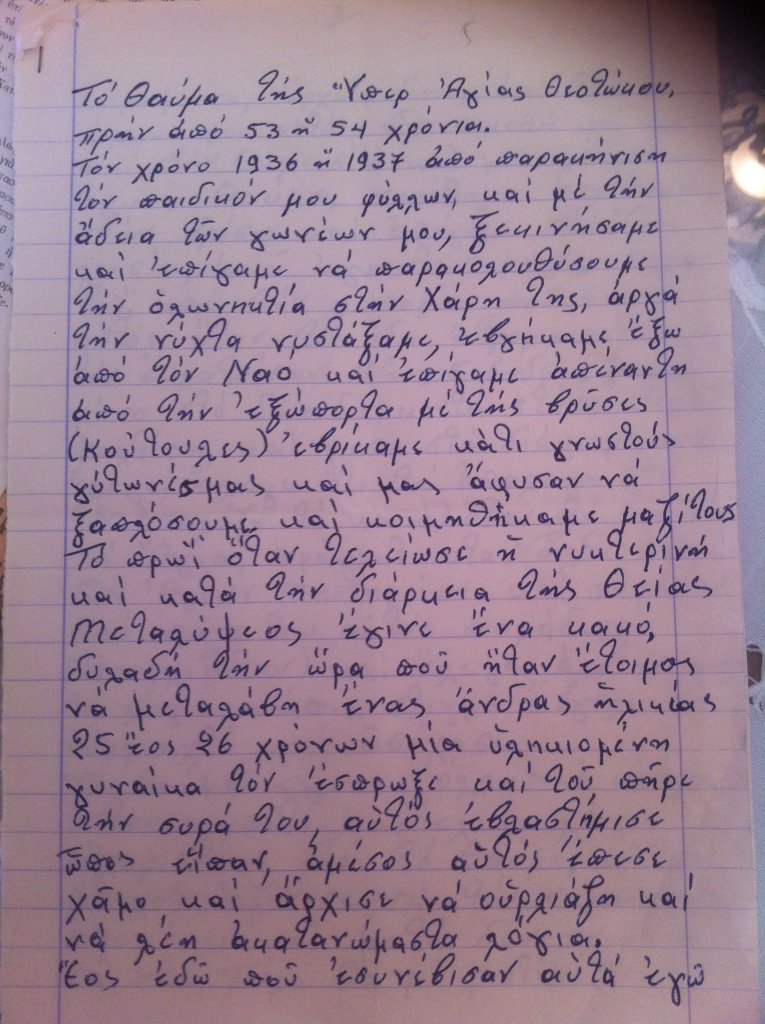 1
Τό θαύμα τής Ὑπερ Ἁγίας Θεοτώκου,
πρήν ἀπό 53 ἤ 54 χρόνια.
Τόν χρόνο 1936 ἤ 1937 ἀπό παρακήνιση
τόν παιδικόν μου φύλλων, καί μέ τήν
ἄδεια τῶν γωνέων μου, ξεκινήσαμε
καί ἐπίγαμε νά παρακολουθύσουμε
τήν ὁλωνηκτία στήν Χάρη της, ἀργά
τήν νύχτα νυστάξαμε, ἐβγήκαμε ἔξω
ἀπό τόν Ναο καί ἐπίγαμε ἀπέναντη
ἀπό τήν ἐξώπορτα μέ τής βρῦσες
(Κούτουλες) ἐβρίκαμε κάτι γνωστούς
γύτωνές μας καί μας ἄφυσαν νά
ξαπλόσουμε καί κοιμηθήκαμε μαζί τους
Τό πρωΐ ὅταν τελείωσε ἡ νυκτερινή
καί κατά τήν διάρκεια τής Θείας
Μεταλύψεος ἔγινε ἕνα κακό,
δυλαδή τήν ὥρα ποῦ ἤταν ἕτοιμος
νά μεταλάβη ἕνας ἄνδρας ἡλικίας
25 ἕος 26 χρόνων μία ὑληκιομένη
γυναίκα τόν ἔσπρωξε καί τοῦ πῆρε
τήν συρά του, αὐτός ἐβλαστήμισε
ὅπος εἶπαν, ἀμέσος αὐτός ἔπεσε
χᾶμο καί ἄρχισε νά οὐρλιάζη καί
νά λέη ἀκατανώμαστα λόγια.
Ἕος ἐδῶ ποῦ ἐσυνέβισαν αὐτά ἐγῶ